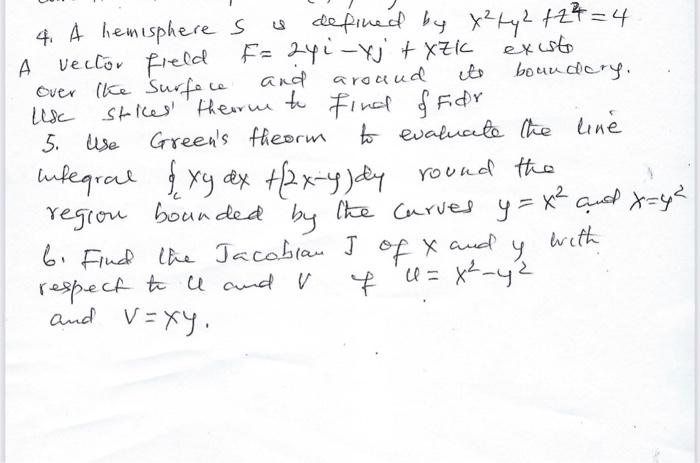 4. A hemisphere S is defined by x²+y²+z²=4
A vector field F= 2yi -xj + xzk exists
over the surface and around its boundary.
Use stokes' theorm to find ∮F.dr
5. Use Green's theorm to evaluate the line
integral ∮c xy dx +(2x-y)dy round the
region bounded by the curves y=x² and x=y²
6. Find the Jacobian J of x and y with
respect to u and v if u= x²-y²
and v=xy.